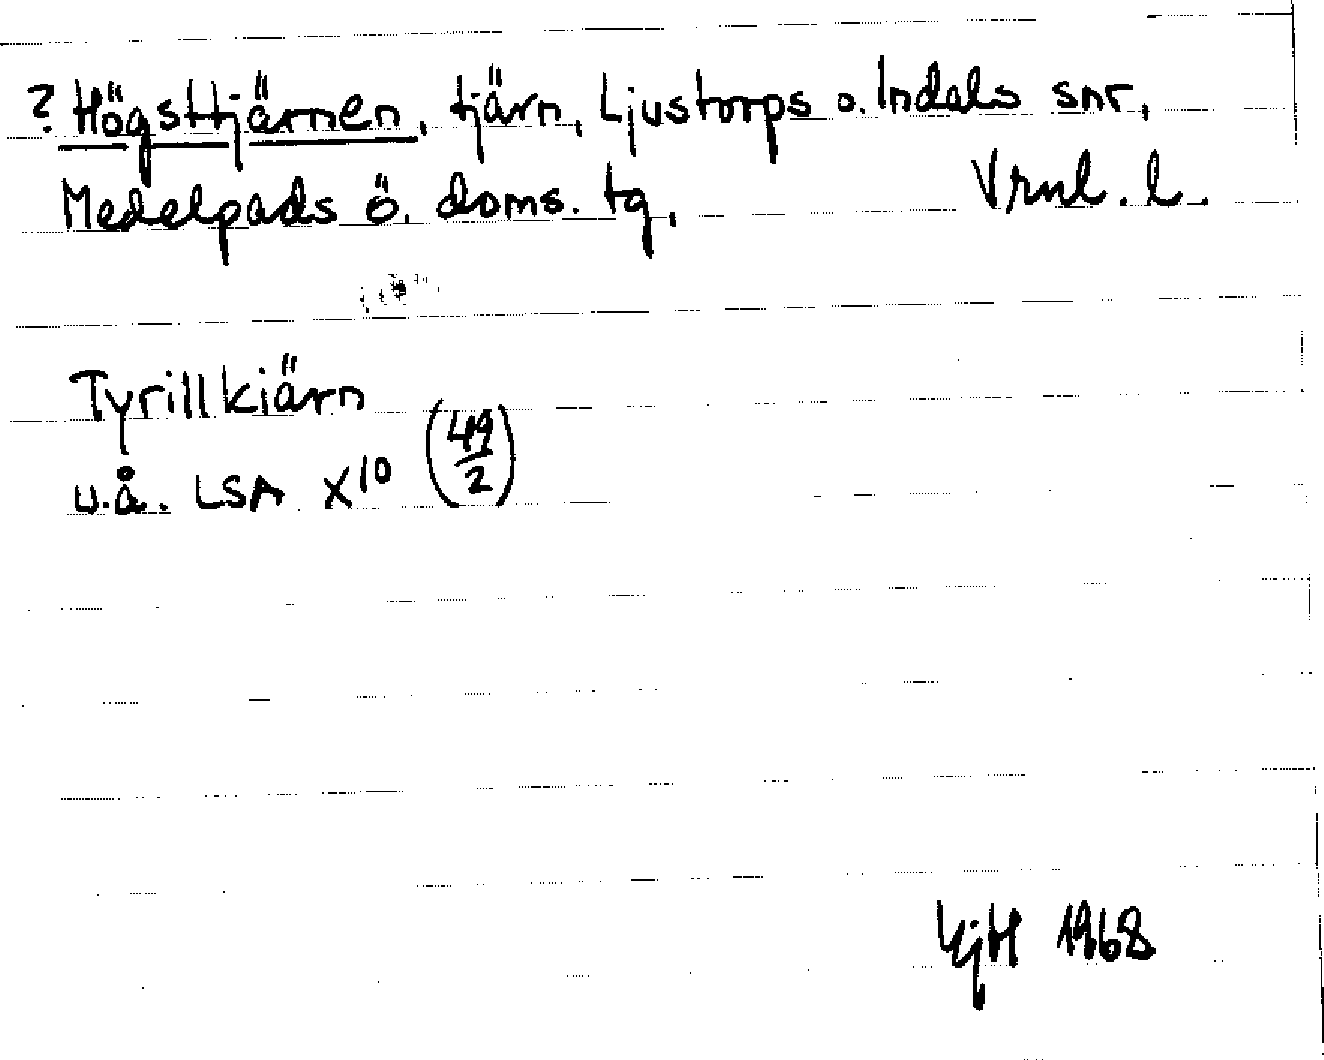 ? Högsttjärnen, tjärn, Ljustorps o. Indals snr,
Medelpads ö. doms. tg, Vrnl. l.
Tyrillkiärn
u.å. LSA X10 (49/2)
KjH 1968